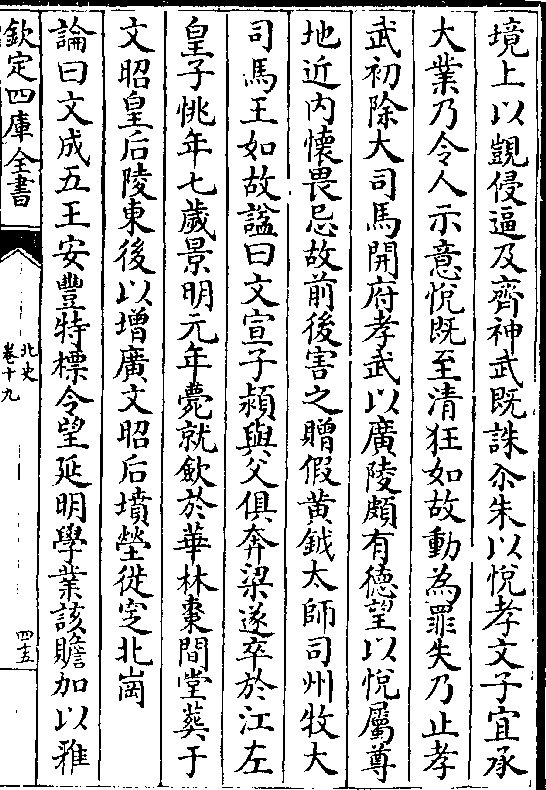 境上以覬侵逼及齊神武既誅尒朱以悅孝文子宜承
大業乃令人示意悅既至清狂如故動為罪失乃止孝
武初除大司馬開府孝武以廣陵頗有德望以悅屬尊
地近内懷畏忌故前後害之贈假黄鉞太師司州牧大
司馬王如故諡曰文宣子熲與父俱奔梁遂卒於江左
皇子恌年七歲景明元年薨就歛於華林棗間堂葬于
文昭皇后陵東後以增廣文昭后墳塋徙窆北崗
論曰文成五王安豐特標令望延明學業該贍加以雅
欽定四庫全書
北史
卷十九
四十五